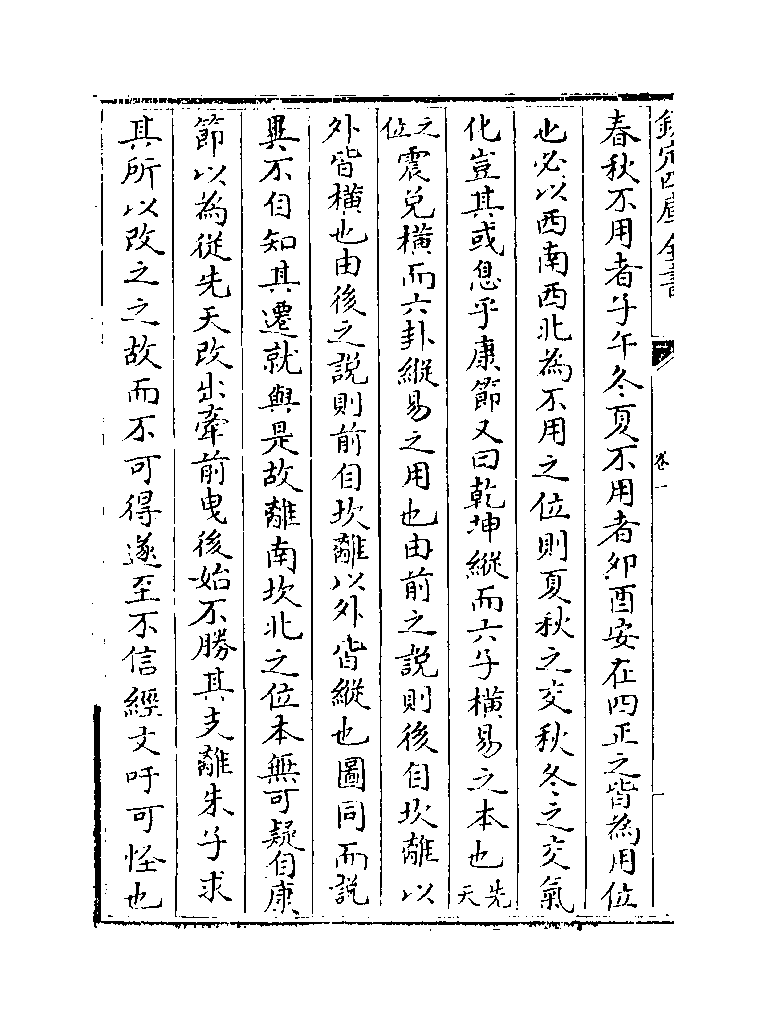 欽定四庫全書
卷一
春秋不用者子午冬夏不用者卯酉安在四正之皆為用位
也必以西南西北為不用之位則夏秋之交秋冬之交氣
化豈其或息乎康節又曰乾坤縱而六子橫易之本也先天
之位震兌橫而六卦縱易之用也由前之說則後自坎離以
外皆橫也由後之說則前自坎離以外皆縱也圖同而說
異不自知其遷就與是故離南坎北之位本無可疑自康
節以為從先天改出牽前曳後始不勝其支離朱子求
其所以改之之故而不可得遂至不信經文吁可怪也